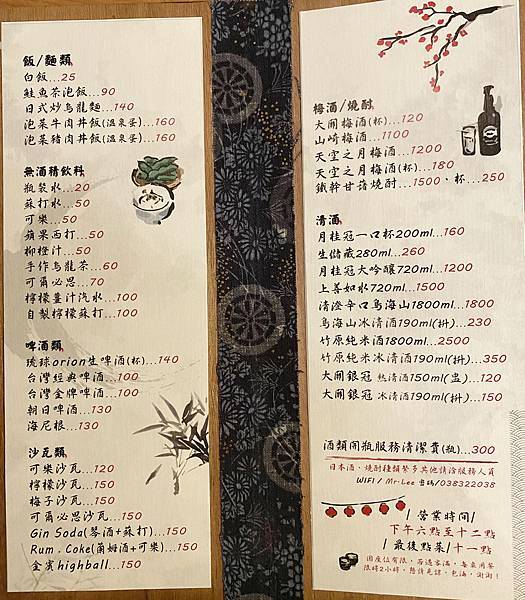 飯/麵類
白飯...25
鮭魚茶泡飯...90
日式炒烏龍麵...140
泡菜牛肉丼飯(溫泉蛋)...160
泡菜豬肉丼飯(溫泉蛋)...160
無酒精飲料
瓶裝水...20
蘇打水...50
可樂...50
蘋果西打...50
柳橙汁...50
手作烏龍茶...60
可爾必思...70
檸檬薑汁汽水...100
自製檸檬蘇打...100
啤酒類
琉球orion生啤酒(杯)...140
台灣經典啤酒...100
台灣金牌啤酒...100
朝日啤酒...130
海尼根...130
沙瓦類
可樂沙瓦...120
檸檬沙瓦...150
梅子沙瓦...150
可爾必思沙瓦...150
Gin Soda(琴酒+蘇打)...150
Rum . Coke(蘭姆酒+可樂)...150
金賓highball...150
梅酒/燒酎
大關梅酒(杯)...120
山崎梅酒...1100
天空之月梅酒...1200
天空之月梅酒(杯)...180
鐵幹甘藷燒酎...1500、杯...250
清酒
月桂冠一口杯200ml...160
生儲藏280ml...260
月桂冠大吟釀720ml...1200
上善如水720ml...1500
清澄辛口鳥海山1800ml...1800
鳥海山冰清酒190ml(拼)...230
竹原純米酒1800ml...2500
竹原純米冰清酒190ml(拼)...350
大關銀冠 熱清酒150ml(盅)...120
大關銀冠 冰清酒190ml(拼)...150
酒類開瓶服務清潔費(瓶)...300
日本酒、燒酎種類繁多其他請洽服務人員
WIFI / Mr·Lee 密碼/038322038
/ 營業時間/
下午六點至十二點
/ 最後點菜/十一點
因座位有限，若遇客滿，每桌用餐
限時2小時，懇請見諒，包涵，謝謝！